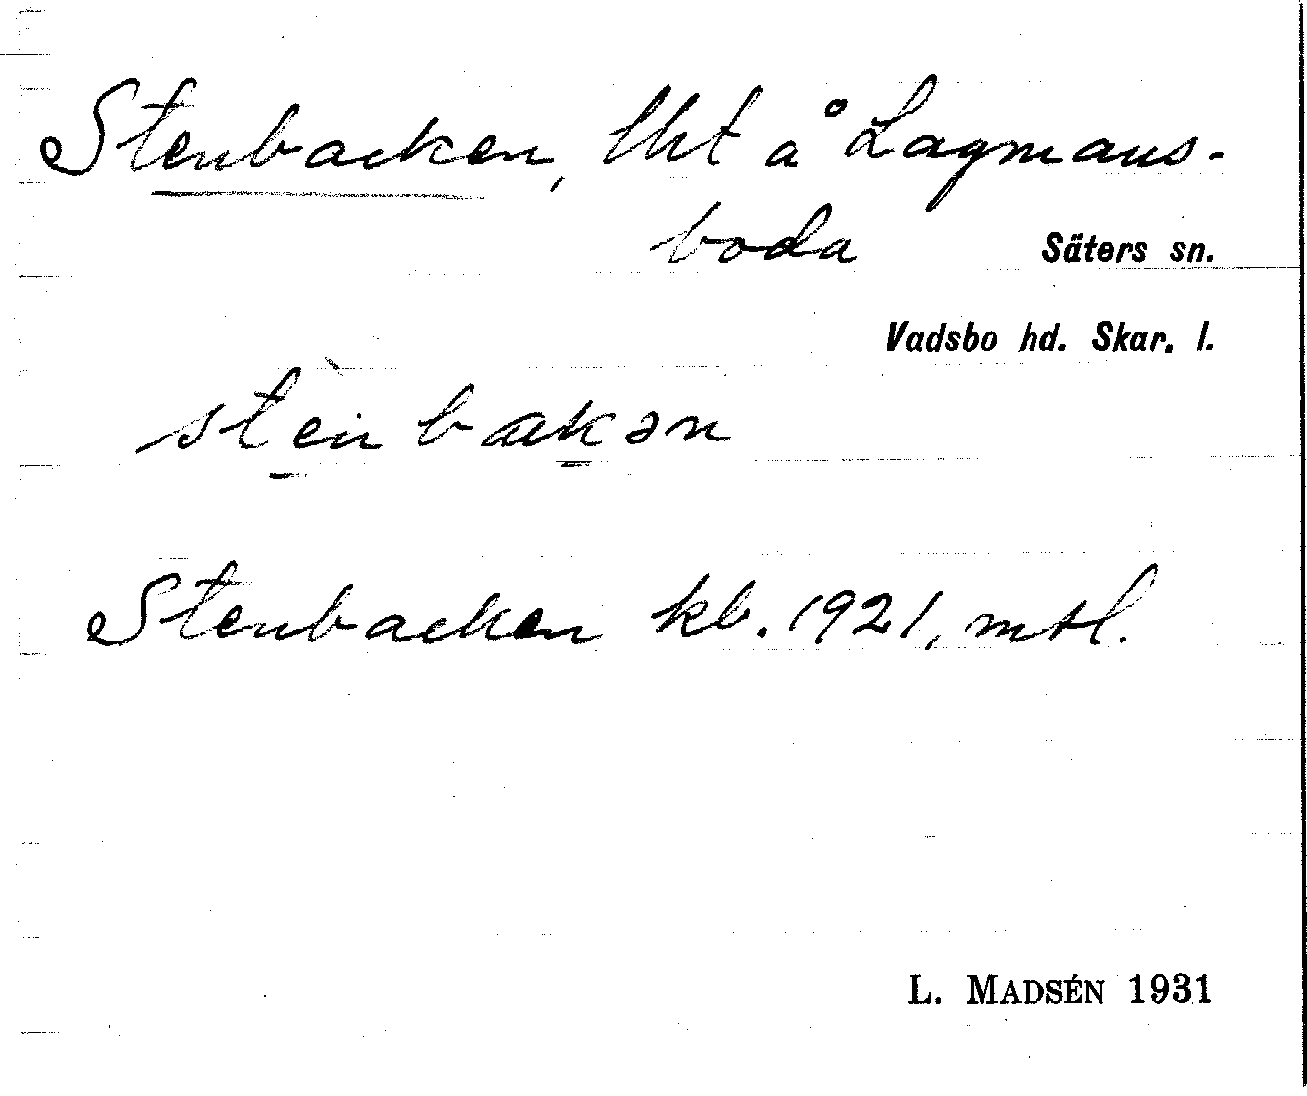 Stenbacken, lht å Lagmans-
boda Säters sn.
Vadsbo hd. Skar. l.
stènbakən
Stenbacken kb. 1921, mtl.
L. MADSÉN 1931